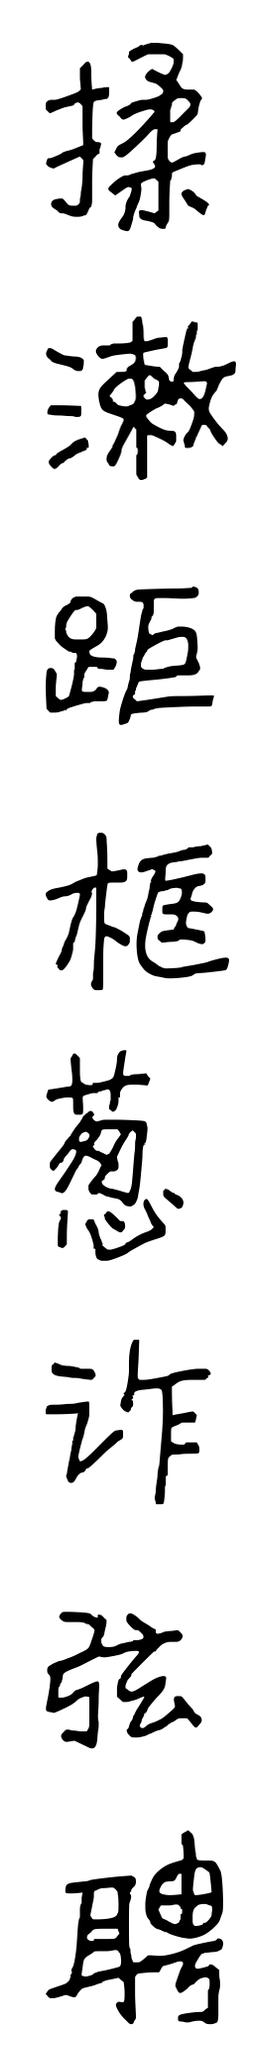 揉
漱
距
框
葱
诈
弦
聘